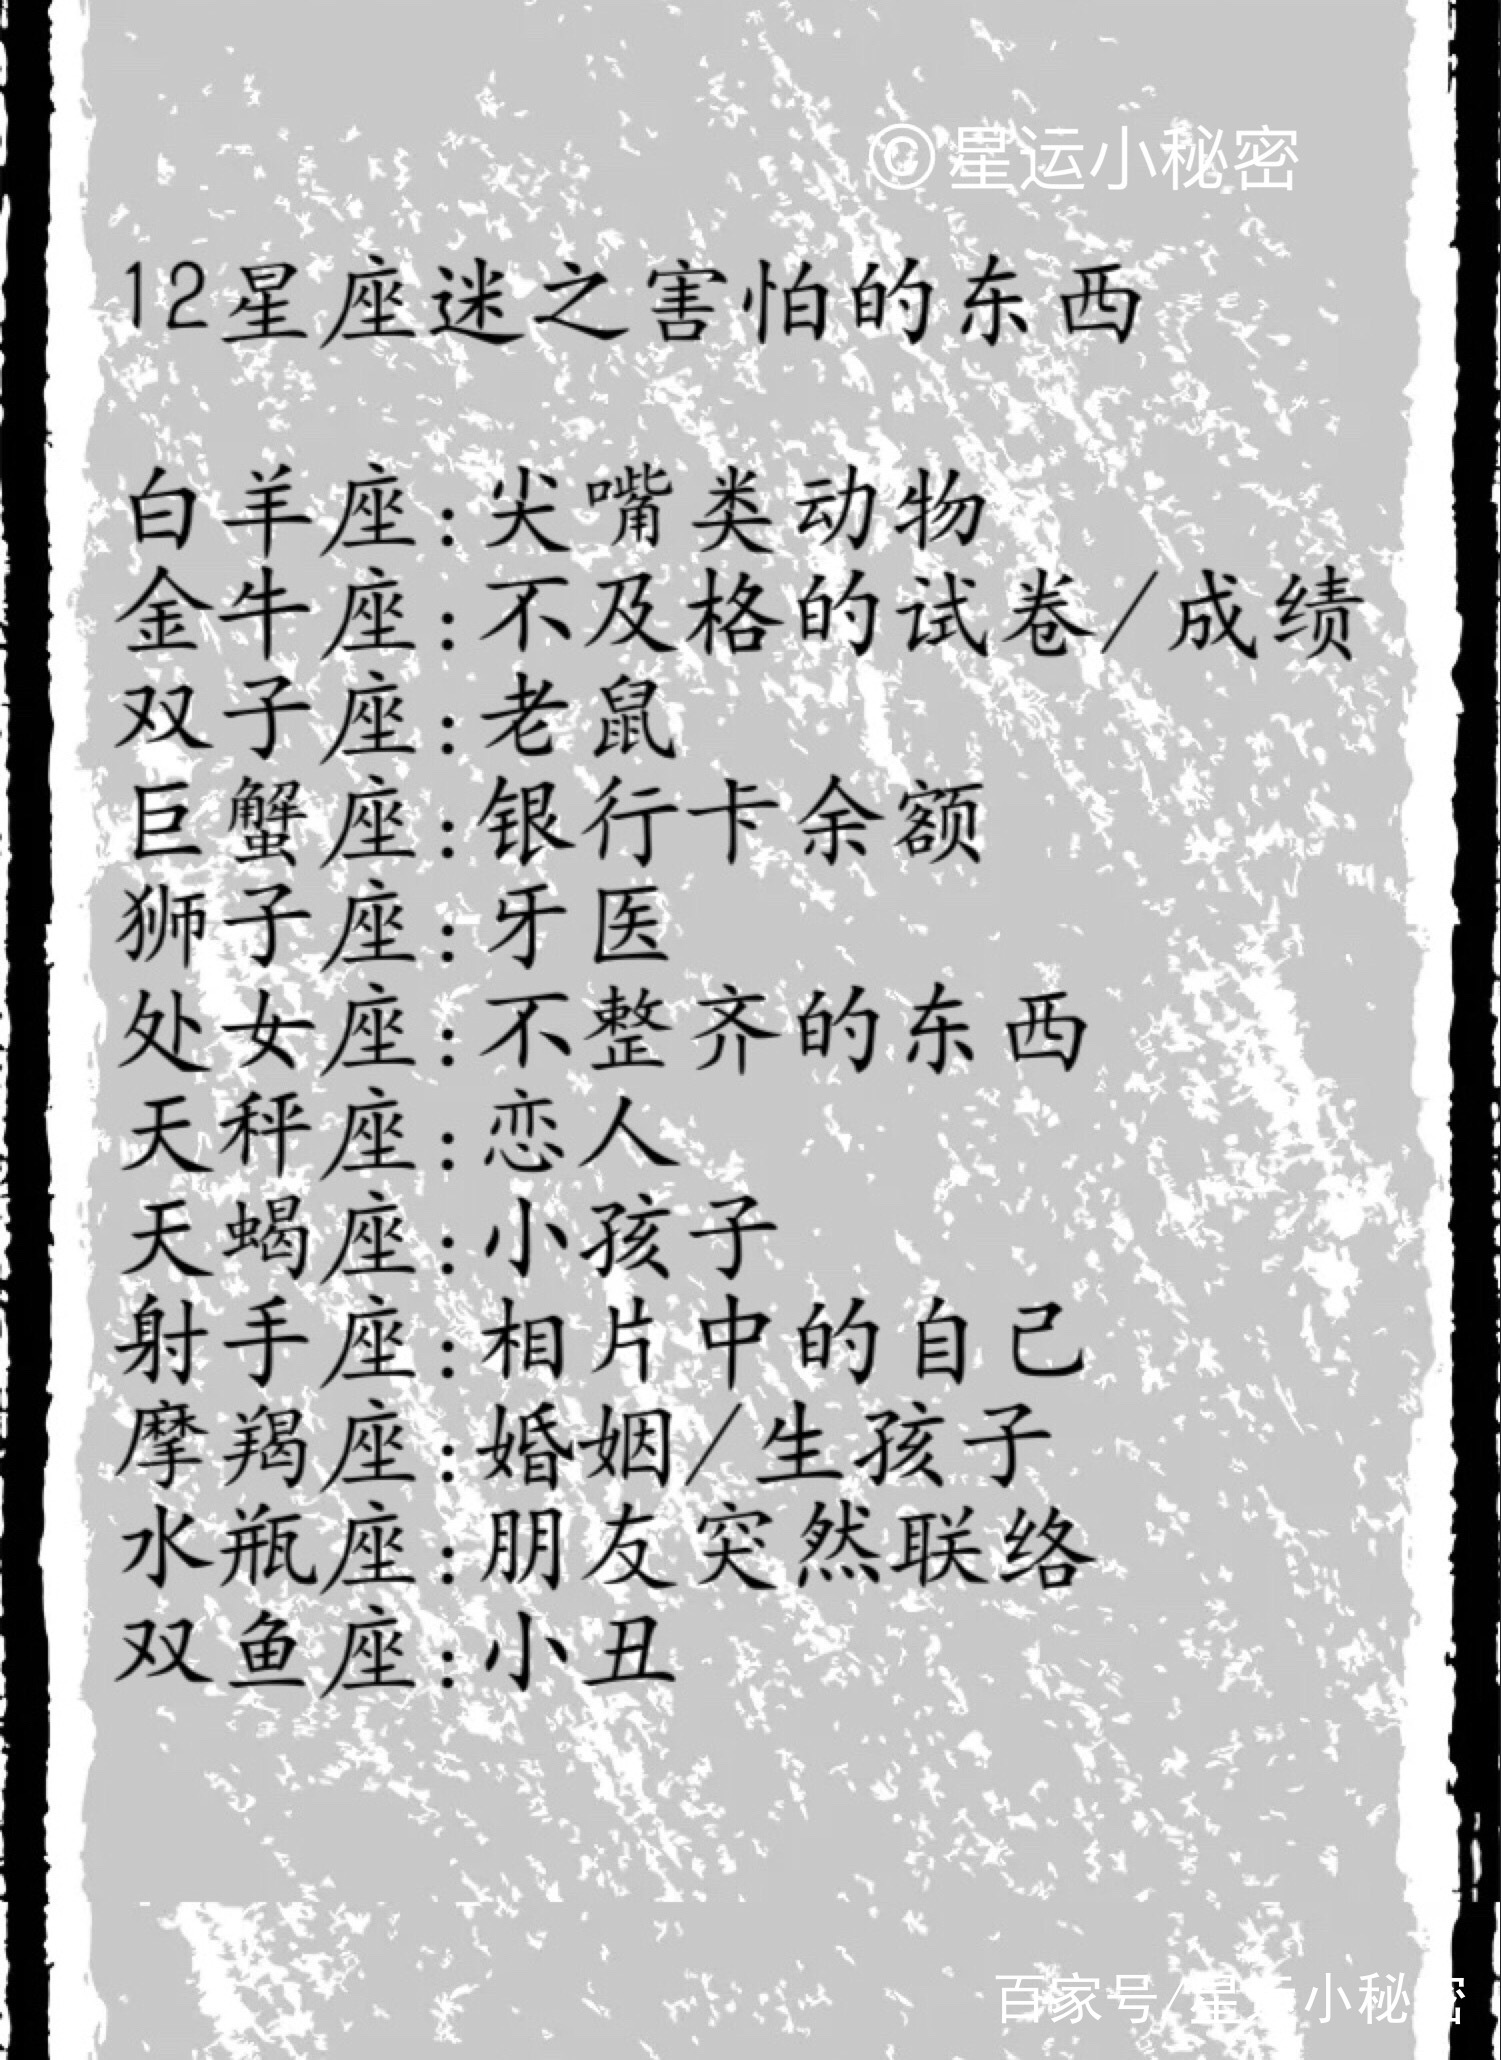 ©星运小秘密
12星座迷之害怕的东西
白羊座:尖嘴类动物
金牛座:不及格的试卷/成绩
双子座:老鼠
巨蟹座:银行卡余额
狮子座:牙医
处女座:不整齐的东西
天秤座:恋人
天蝎座:小孩子
射手座:相片中的自己
摩羯座:婚姻/生孩子
水瓶座:朋友突然联络
双鱼座:小丑
百家号/星运小秘密